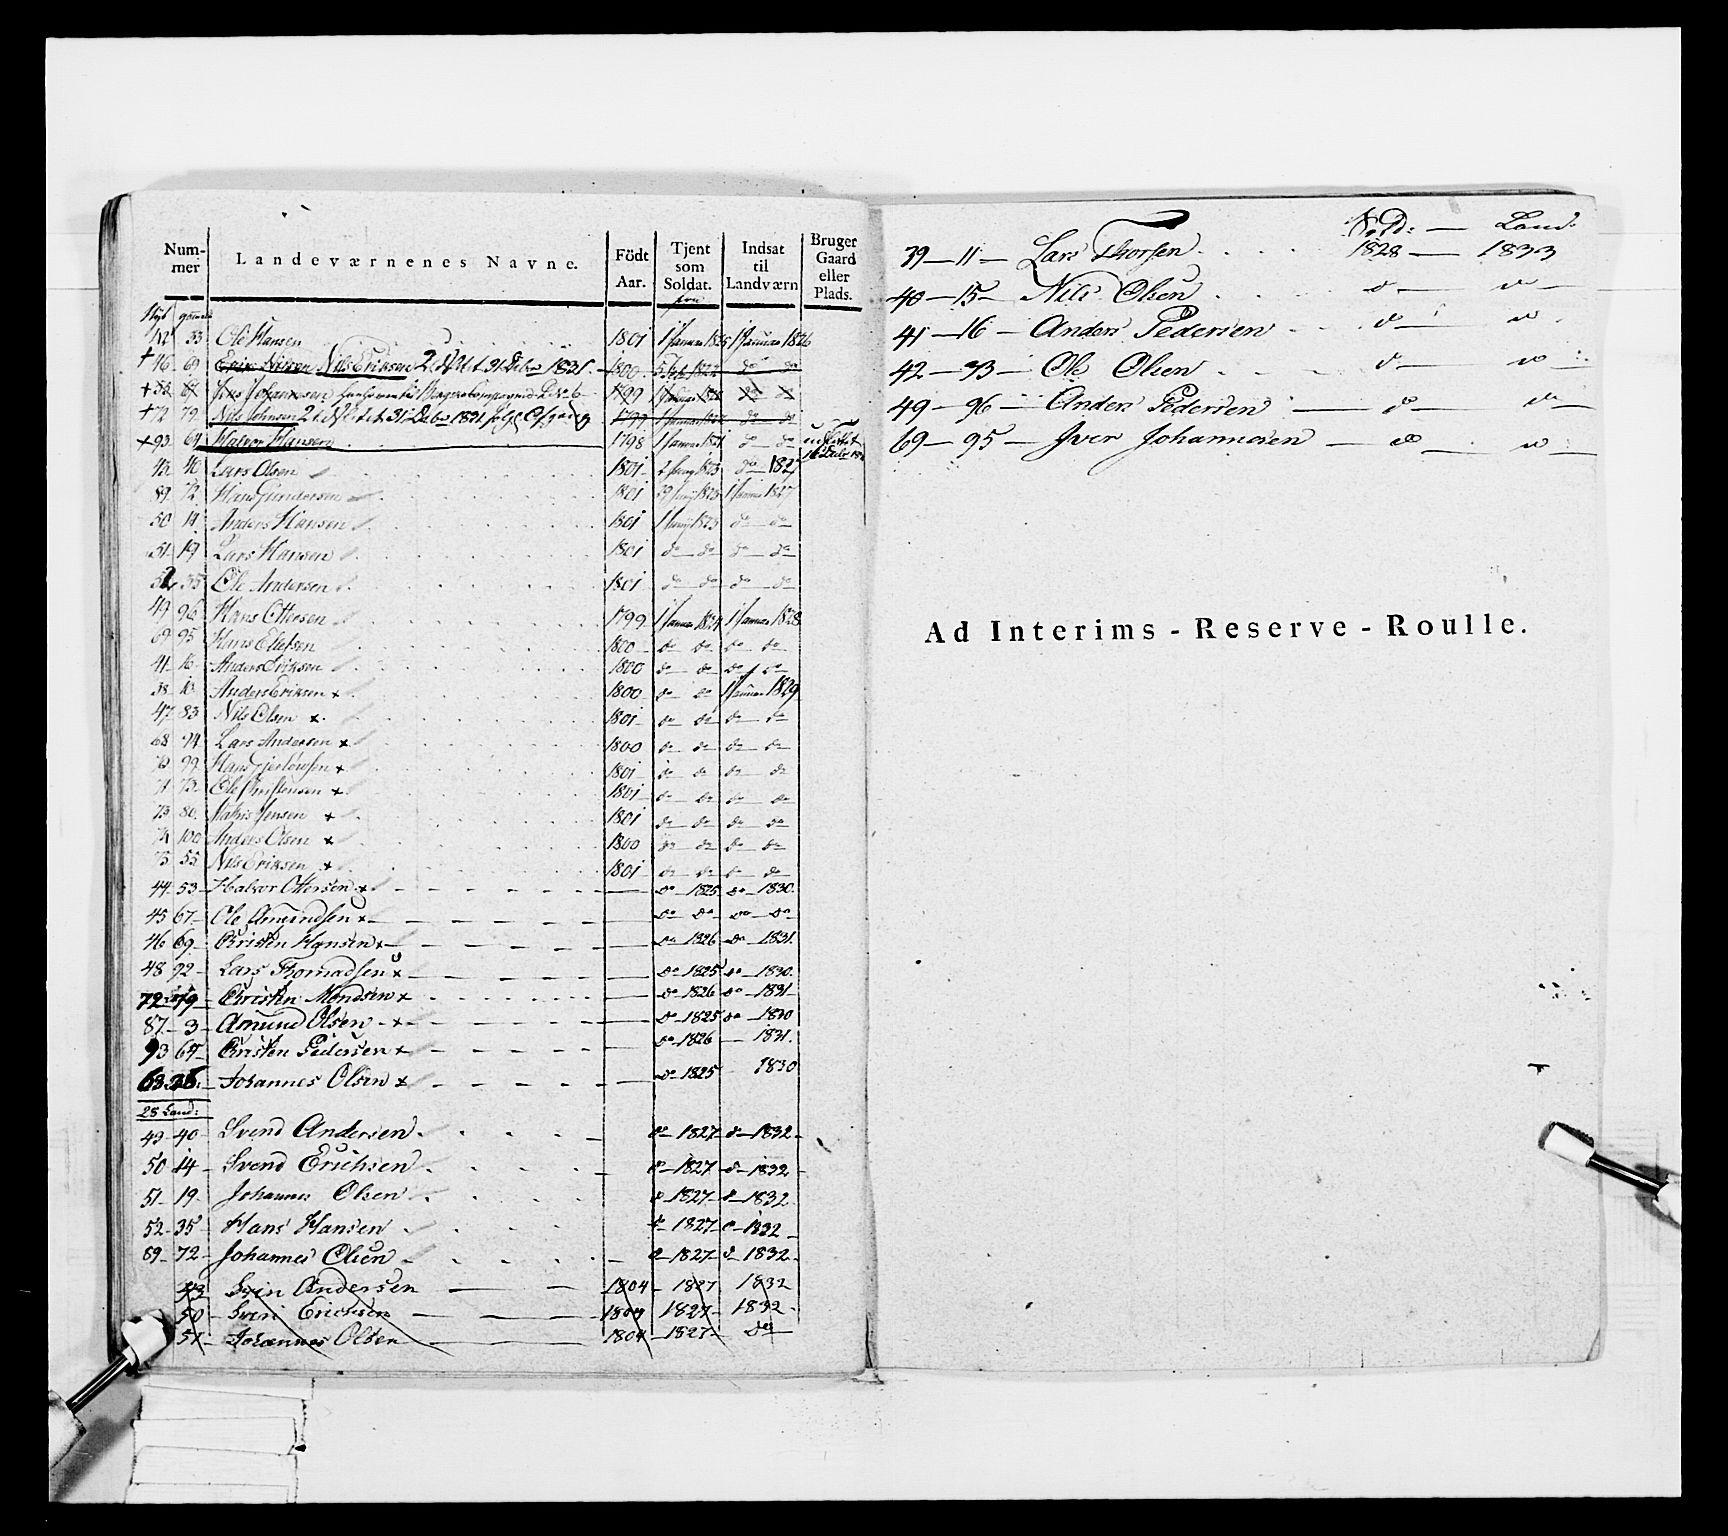 Num-
mer
Landeværnenes Navne.
Födt
Aar.
Tjent
som
Soldat.
fra
Indsat
til
Landværn
Bruger
Gaard
eller
Plads.
42 33 Ole Hansen 1801 1 Januar 1825 1 Januar 1826
+46 69 Erik Nilsen Nils Eriksen 1800 do do
+53 67 Jens Johannesen 1799 do do
+72 79 Nils Johnsen 1799 do do
+93 64 Halvor Hansen 1798 do do
43 40 Lars Olsen 1801 do 1827
89 72 Hans Gundersen 1801 1 Januar 1827
50 14 Anders Hansen 1801 do do
51 19 Lars Hansen 1801 do do do do
52 35 Ole Andersen 1801 do do do do
49 96 Hans Ottersen 1799 1 Januar 1824 1 Januar 1828
69 95 Hans Olafsen 1800 do do do do
41 16 Anders Eriksen 1800 do do do do
38 10 Anders Eriksen x 1800 do do 1 Januar 1829
47 83 Nils Olsen x 1801 do do do do
68 94 Lars Andersen x 1800 do do do do
70 99 Hans x 1801 do do do do
71 73 Ole Christensen x 1801 do do do do
73 80 Mathis Jensen x 1801 do do do do
74 100 Anders Olsen x 1800 do do do do
75 55 Nils Eriksen x 1801 do do do do
44 53 Halvor Ottersen x do 1825 do 1830
45 67 Ole Amundsen x do do do do
46 69 Christen Hansen x do 1826 do 1831
48 92 Lars Thomadsen x do 1825 do 1830
72 79 Christen Mondsen x do 1826 do 1831
87 3 Amund Olsen x do 1825 do 1830
93 64 Christen Pedersen x do 1826 1831
63 25 Johannes Olsen x do 1825 1830
28 Land:
43 40 Svend Andersen do 1827 do 1832
50 14 Svend Erichsen do 1827 do 1832
51 19 Johannes Olsen do 1827 do 1832
52 35 Hans Hansen do 1827 do 1832
89 72 Johannes Olsen do 1827 do 1832
43 Svin Andersen 1804 1827 1832
50 Sven Ericksen 1804 1827 1832
51 Johannes Olsen 1804 1827 do
Sold: — Land:
39 — 11 — Lars Thorsen 1828 — 1833
40 — 15 — Nils Olsen do do
41 — 16 — Anders Pedersen do do
42 — 33 — Ole Olsen do do
49 — 96 — Anders Pedersen do do
69 — 95 — Iver Johannesen do do
Ad Interims-Reserve-Roulle.